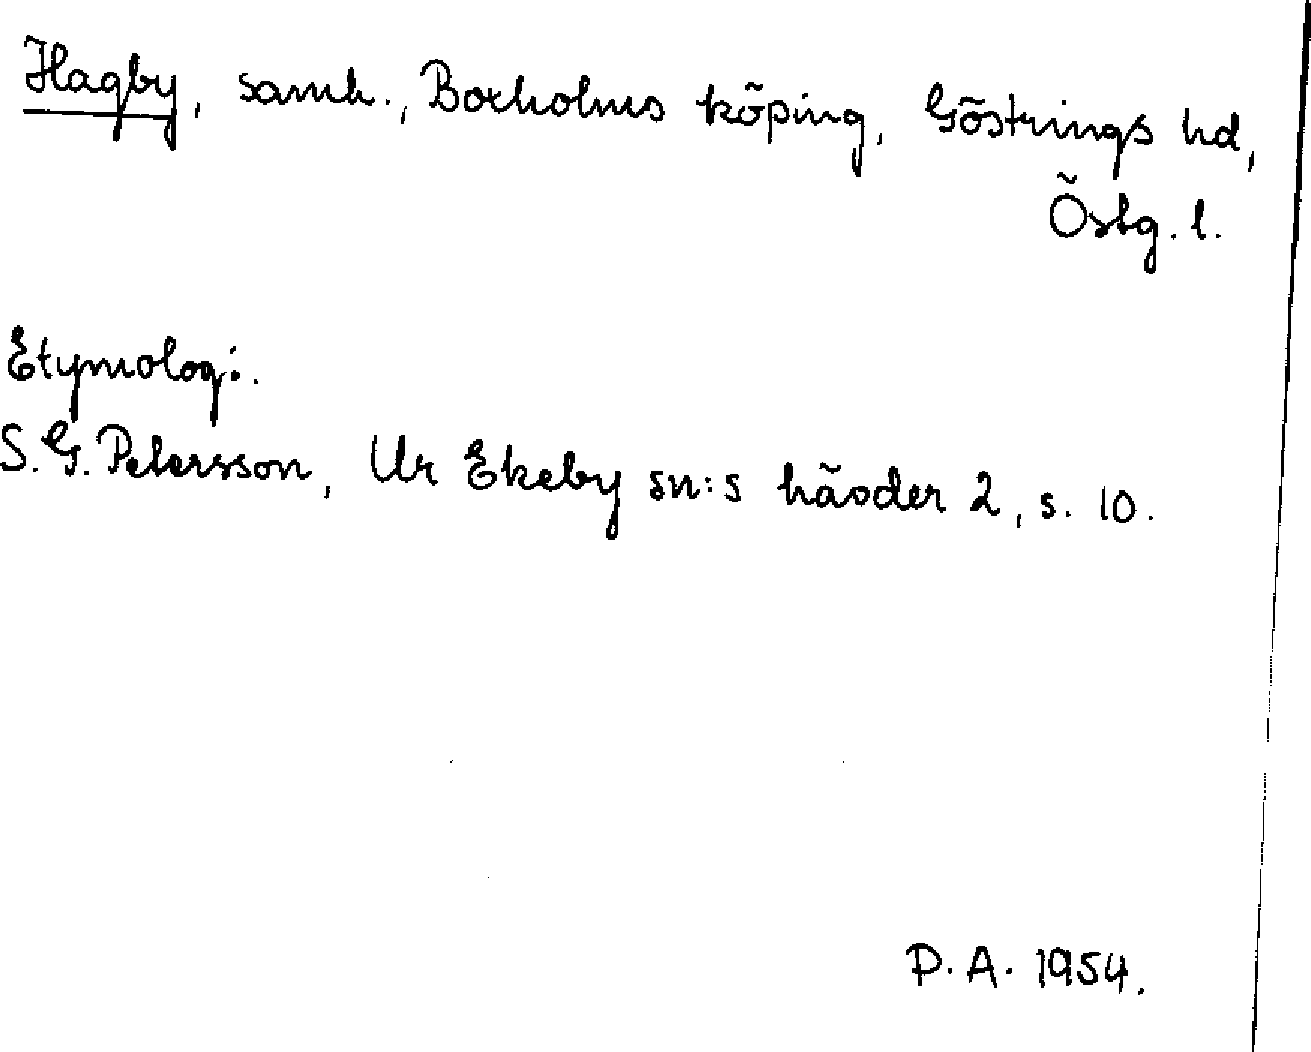 Hagby, samh., Boxholms köping, Göstrings hd,
Östg. l.
Etymologi.
S. G. Petersson, Ur Ekeby sn:s hävder 2, s. 10.
P. A. 1954.